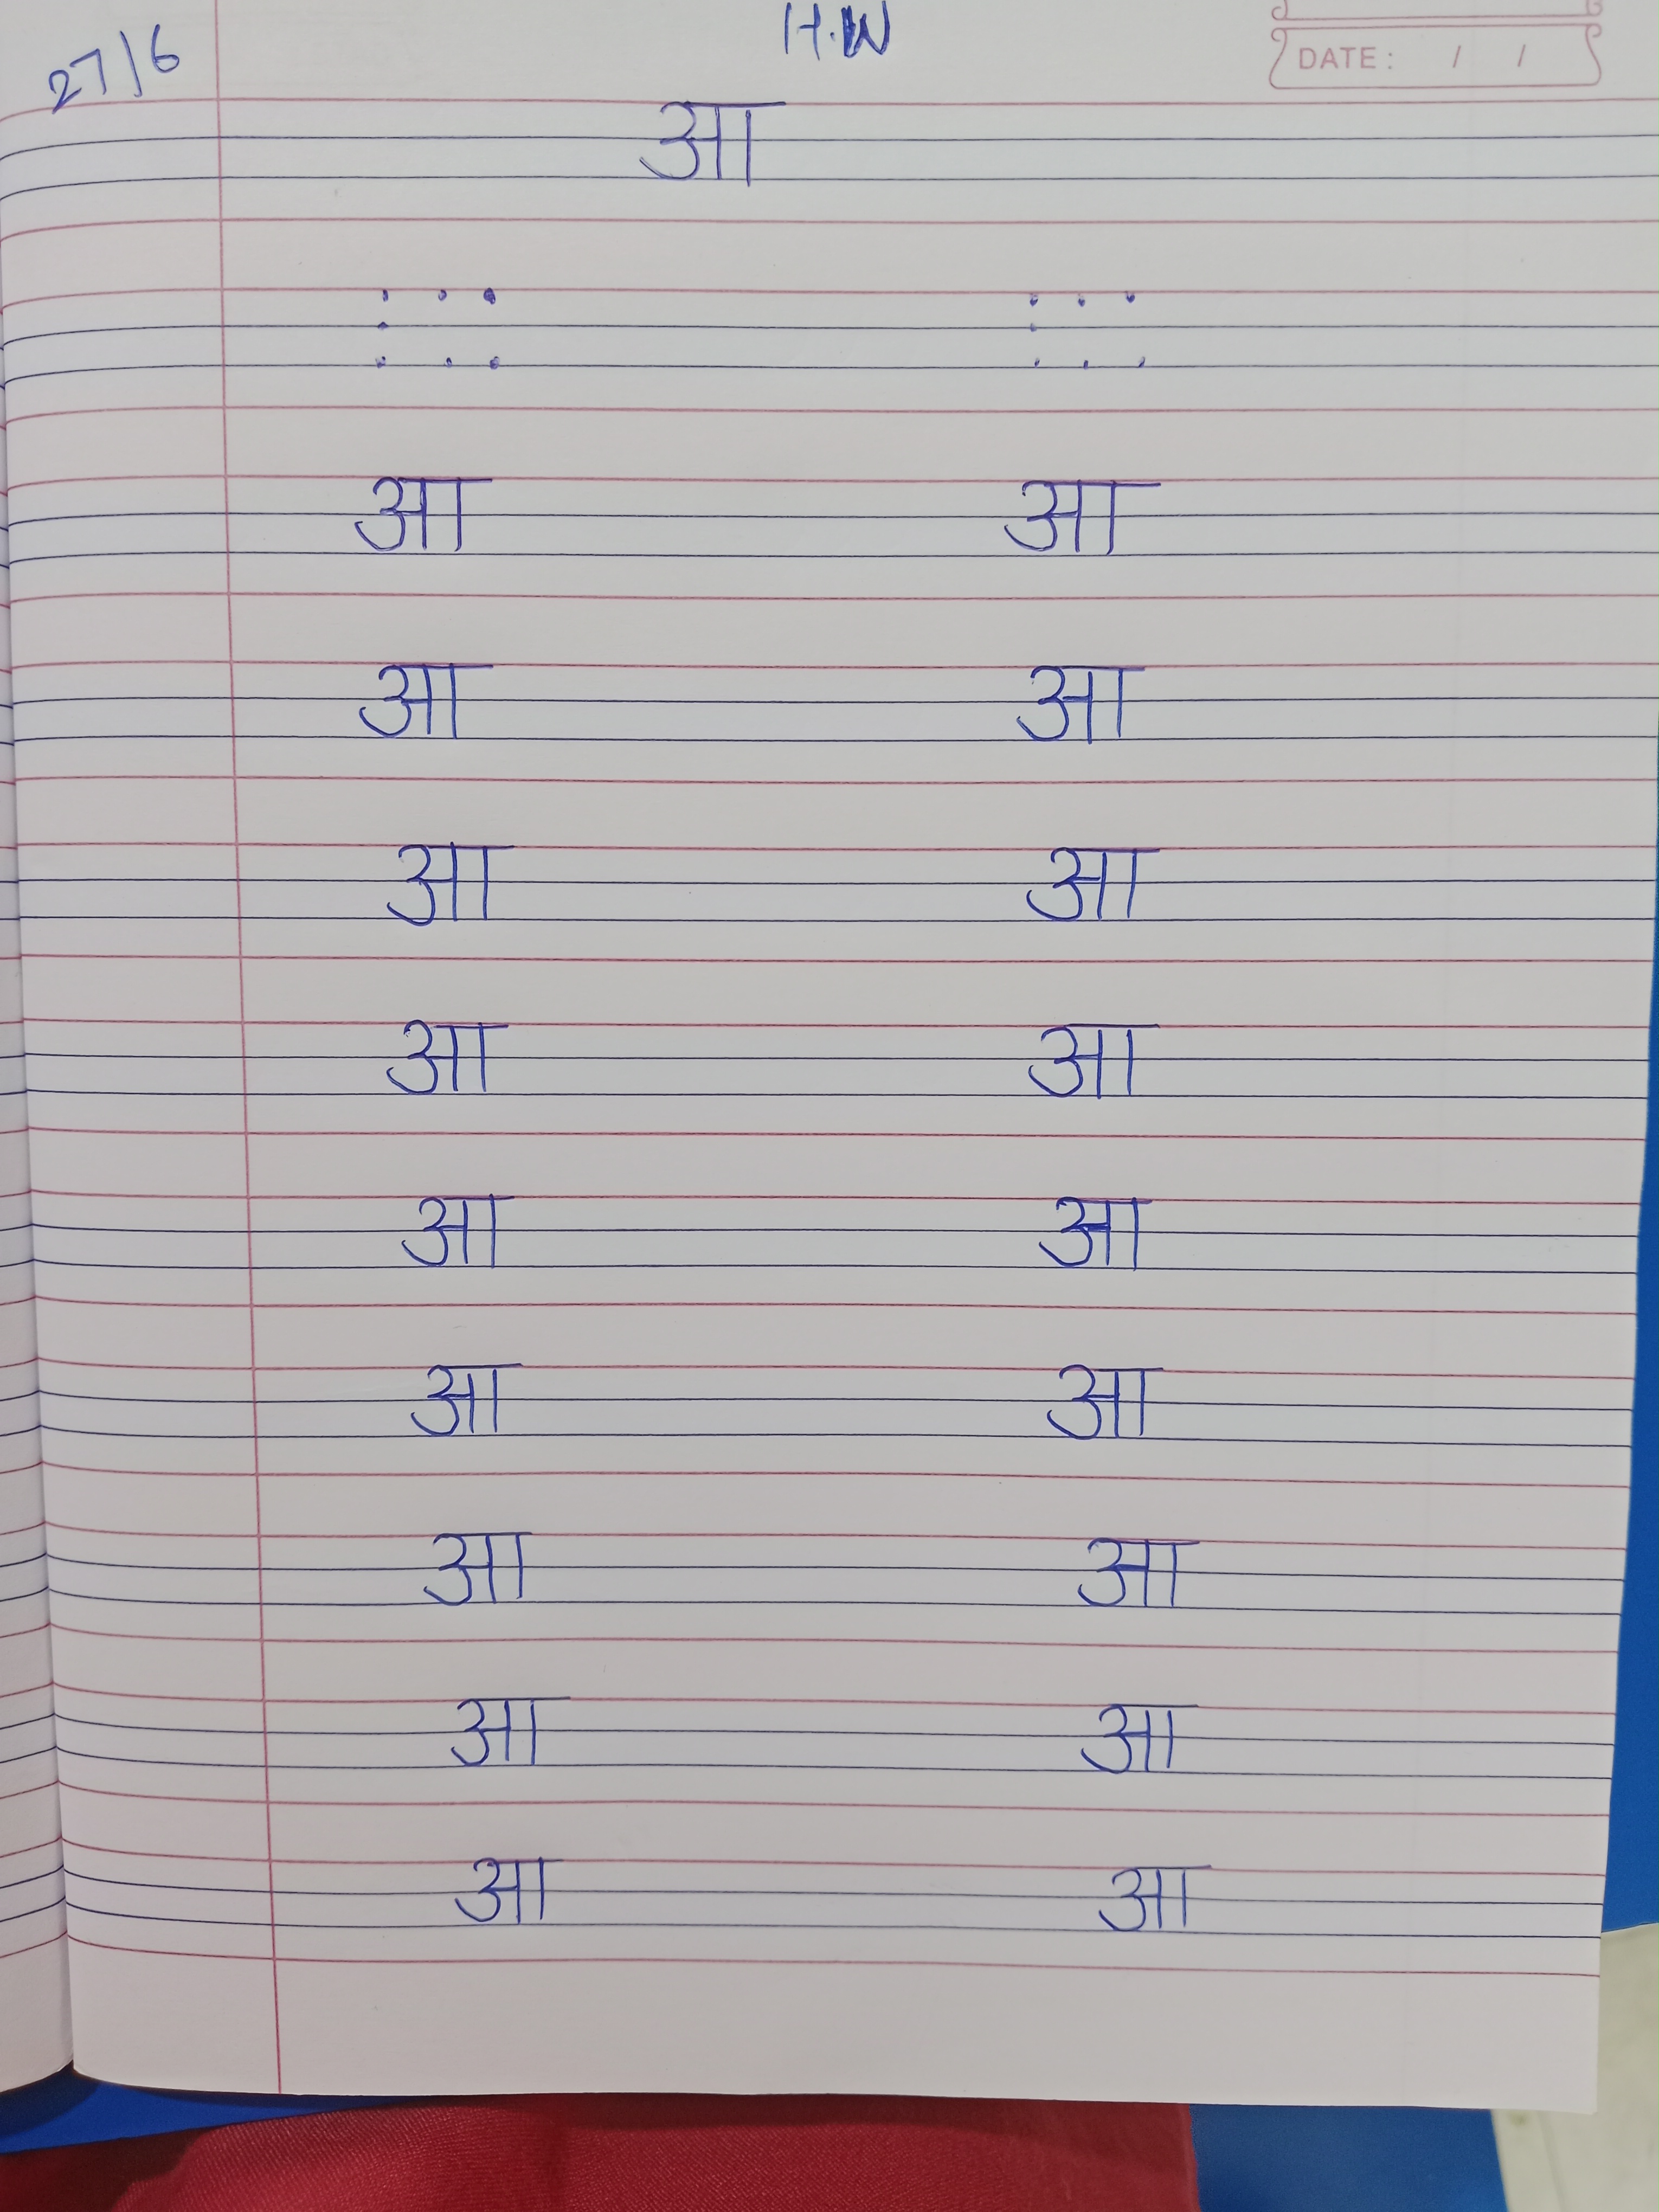 27/6
H.W
DATE: / /
आ
आ आ
आ आ
आ आ
आ आ
आ आ
आ आ
आ आ
आ आ
आ आ